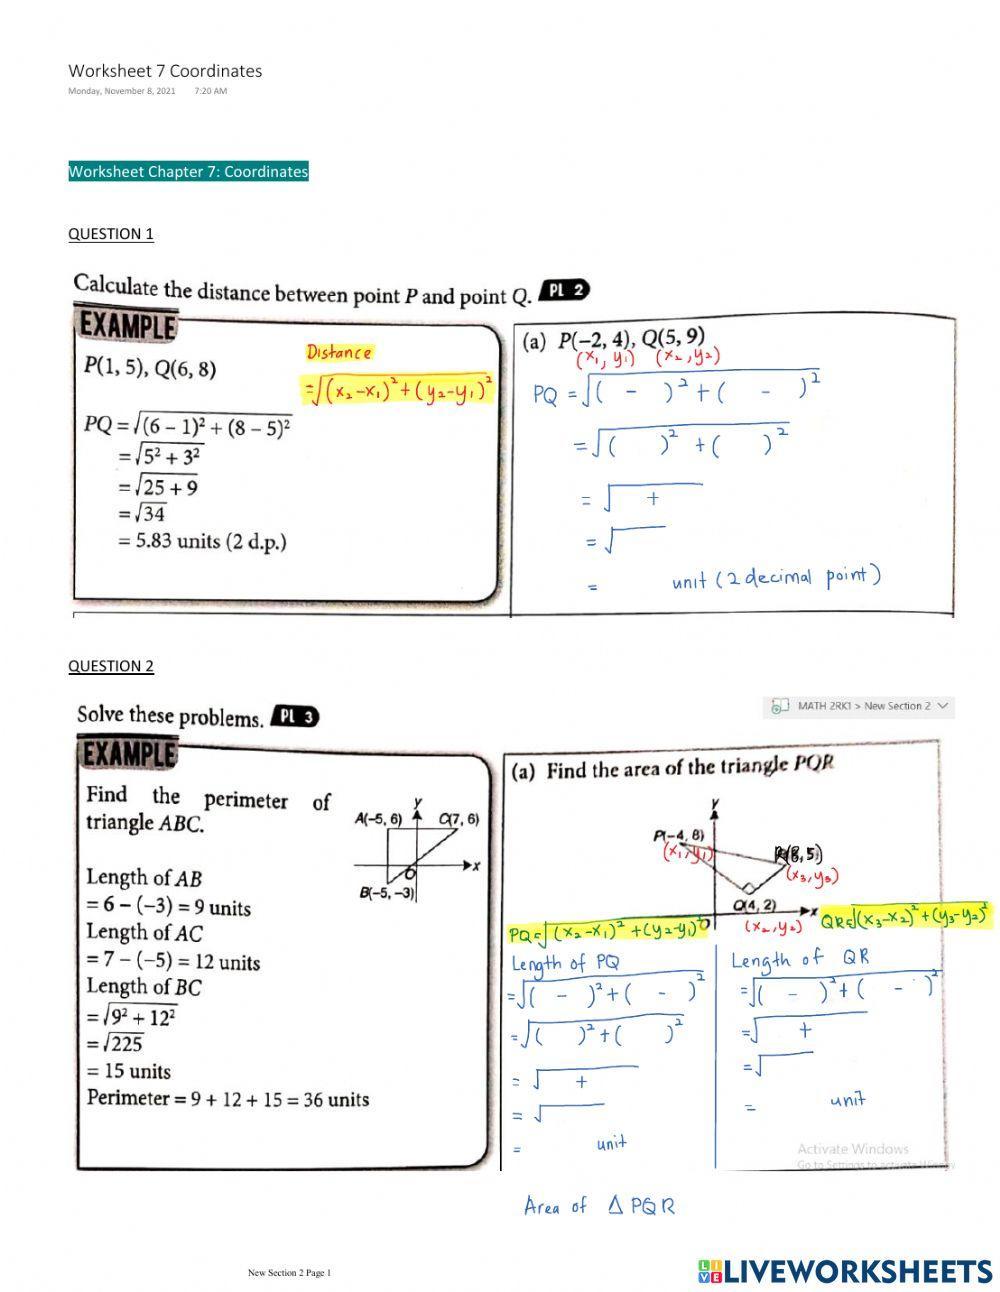 Worksheet 7 Coordinates
Monday, November 8, 2021 7:20 AM
Worksheet Chapter 7: Coordinates
QUESTION 1
Calculate the distance between point P and point Q. PL 2
EXAMPLE
P(1, 5), Q(6, 8)
Distance
= √(x₂-x₁)² + (y₂-y₁)²
PQ = √(6 – 1)² + (8 – 5)²
= √5² + 3²
= √25 + 9
= √34
= 5.83 units (2 d.p.)
(a) P(–2, 4), Q(5, 9)
(x₁, y₁) (x₂, y₂)
PQ = √( - )² + ( - )²
= √( )² + ( )²
= √ +
= √
= unit (2 decimal point)
QUESTION 2
MATH 2RK1 > New Section 2
Solve these problems. PL 3
EXAMPLE
Find the perimeter of
triangle ABC.
y
A(–5, 6) C(7, 6)
x
O
B(–5, –3)
Length of AB
= 6 – (–3) = 9 units
Length of AC
= 7 – (–5) = 12 units
Length of BC
= √9² + 12²
= √225
= 15 units
Perimeter = 9 + 12 + 15 = 36 units
(a) Find the area of the triangle PQR
y
P(–4, 8)
(x₁, y₁)
R(8, 5)
(x₃, y₃)
Q(4, 2)
x
O
(x₂, y₂)
PQ = √(x₂-x₁)² + (y₂-y₁)²
QR = √(x₃-x₂)² + (y₃-y₂)²
Length of PQ
= √( - )² + ( - )²
= √( )² + ( )²
= √ +
= √
= unit
Length of QR
= √( - )² + ( - )²
= √ +
= √
= unit
Activate Windows
Go to Settings to activate Windows
Area of Δ PQR
New Section 2 Page 1
LIVE LIVEWORKSHEETS